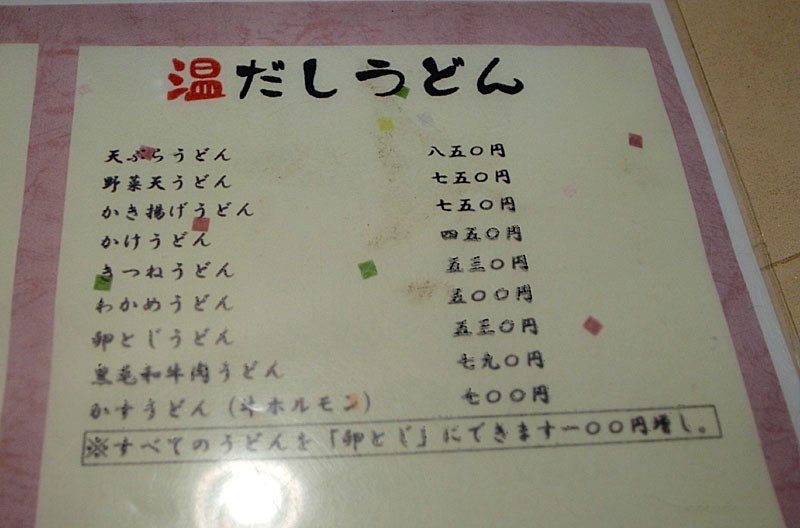 温だしうどん
天ぷらうどん 八五〇円
野菜天うどん 七五〇円
かき揚げうどん 七五〇円
かけうどん 四五〇円
きつねうどん 五三〇円
わかめうどん 五〇〇円
卵とじうどん 五三〇円
黒毛和牛肉うどん 七九〇円
かすうどん（牛ホルモン） 七〇〇円
※すべてのうどんを「卵とじ」にできます一〇〇円増し。